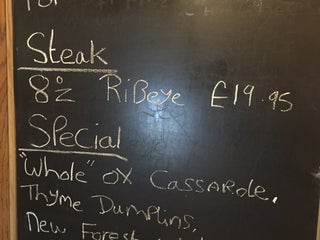 Steak
8oz RiBeye £19.95
Special
"Whole" ox Cassarole,
Thyme Dumplins,
New Forest